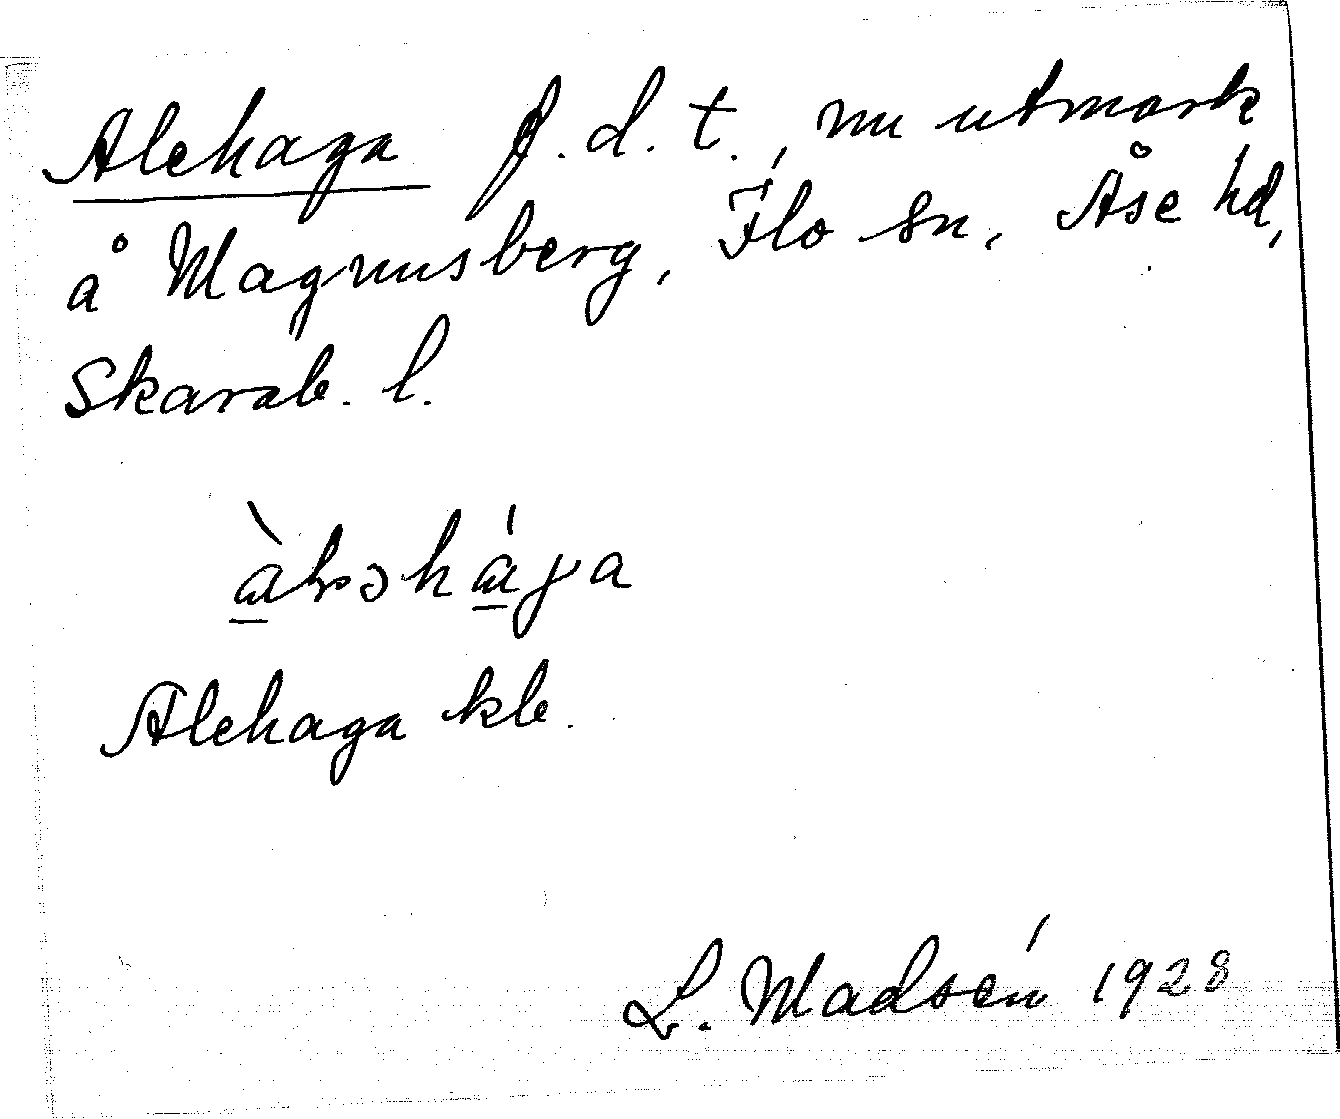 Alehaga f.d.t., nu utmark
å Magnusberg, Flo sn, Åse hd,
Skarab. l.
Alehaga kb.
L. Madsén 1928